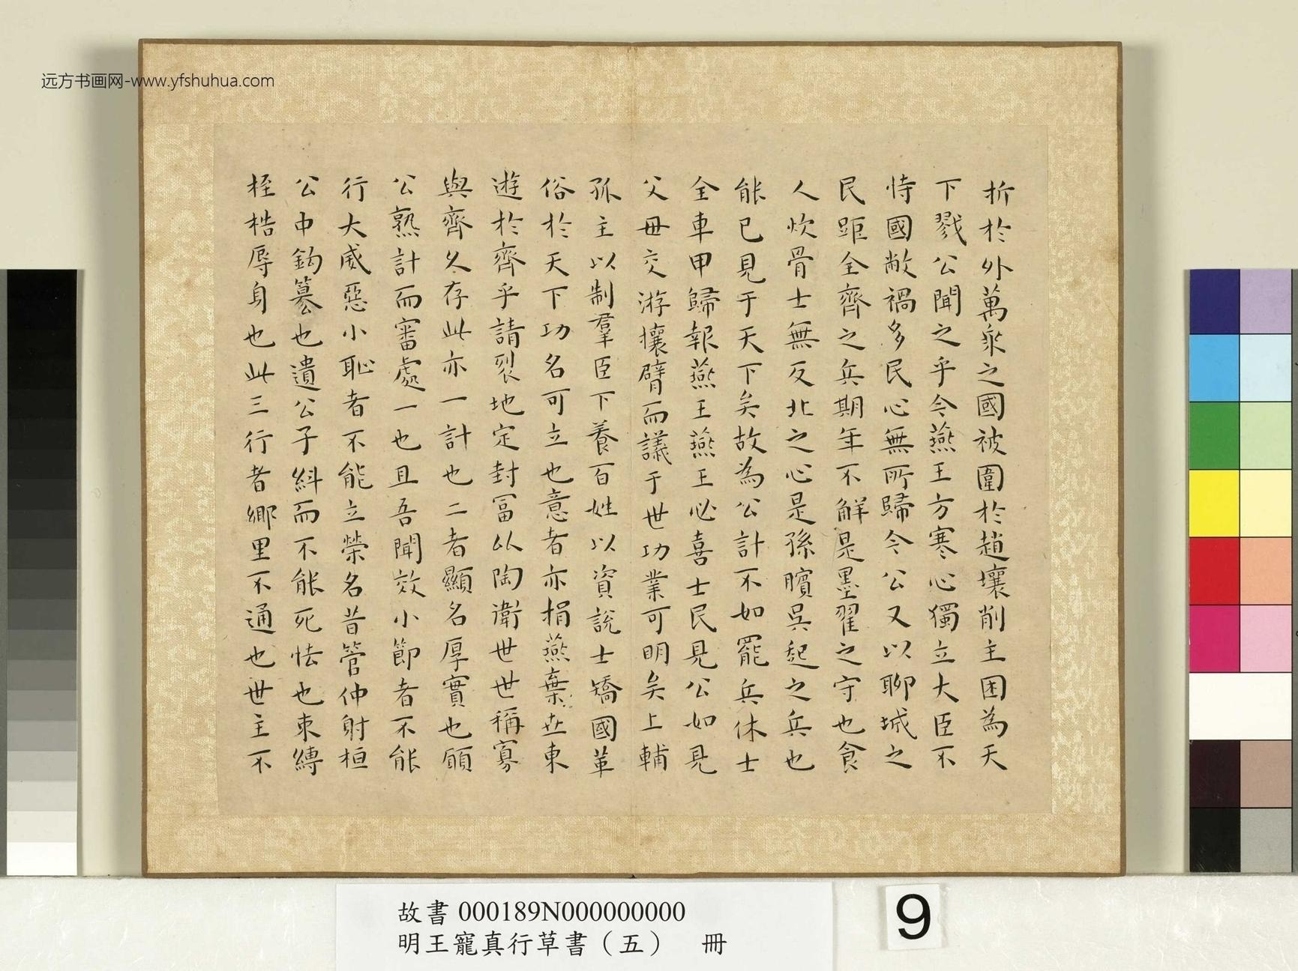 远方书画网-www.yfshuhua.com
折於外萬乘之國被圍於趙壤削主困為天
下戮公聞之乎今燕王方寒心獨立大臣不
恃國敝禍多民心無所歸今公又以聊城之
民距全齊之兵期年不解是墨翟之守也食
人炊骨士無反北之心是孫臏吳起之兵也
能已見于天下矣故為公計不如罷兵休士
全車甲歸報燕王燕王必喜士民見公如見
父母交游攘臂而議于世功業可明矣上輔
孤主以制羣臣下養百姓以資說士矯國革
俗於天下功名可立也意者亦捐燕棄世東
遊於齊乎請裂地定封富以陶衛世世稱寡
與齊久存此亦一計也二者顯名厚實也願
公熟計而審處一也且吾聞效小節者不能
行大威惡小恥者不能立榮名昔管仲射桓
公中鉤篡也遺公子糾而不能死怯也束縛
桎梏辱身也此三行者鄉里不通也世主不
故書 000189N000000000
明王寵真行草書（五） 冊
9